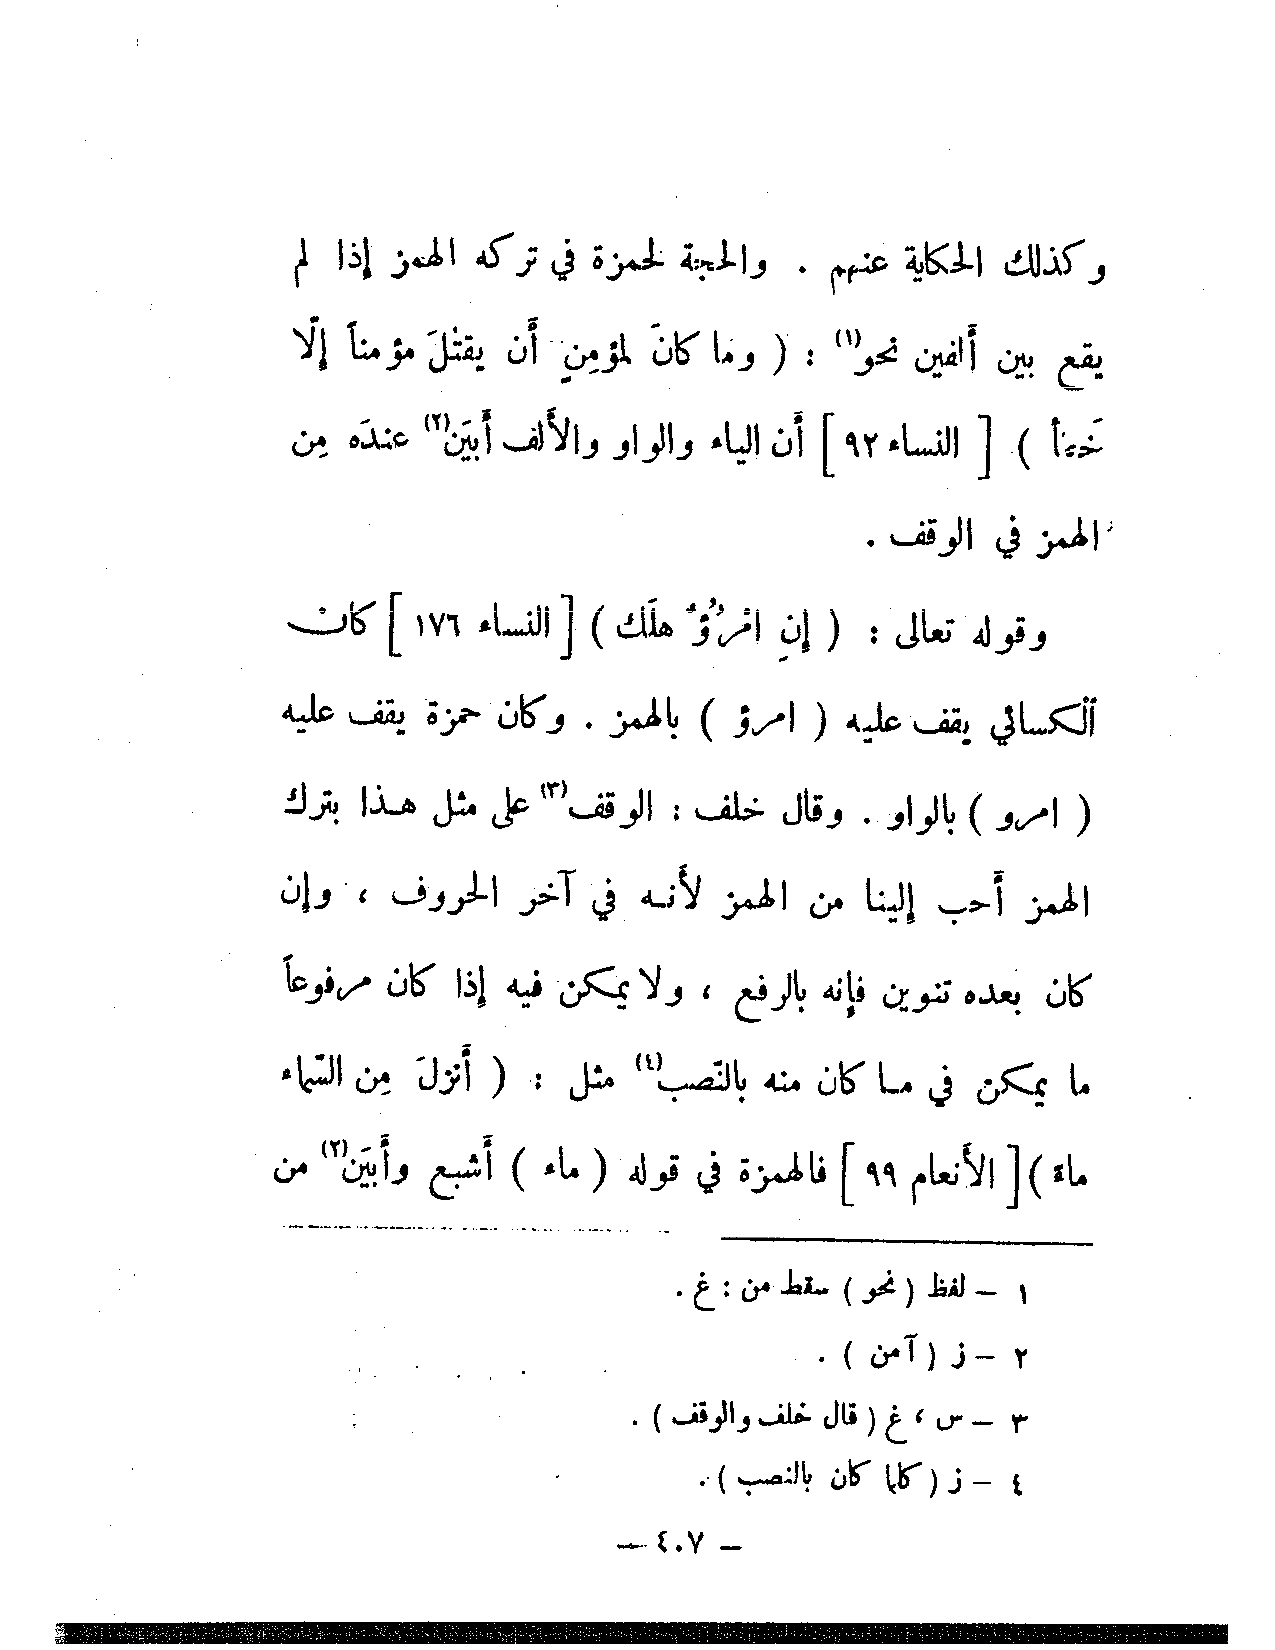 وكذلك الحكاية عنهم . والحجة لحمزة في تركه الهمز إذا لم
يقع بين ألفين نحو(١) : ( وما كانَ لمؤمِنٍ أن يقتُلَ مؤمناً إلّا
خَطأً ) [ النساء ٩٢ ] أن الياء والواو والألف أبيَن(٢) عندَه مِن
الهمز في الوقف .
وقوله تعالى : ( إنِ امْرُؤٌ هلَك ) [ النساء ١٧٦ ] كان
ألكسائي يقف عليه ( امرؤ ) بالهمز . وكان حمزة يقف عليه
( امرو ) بالواو . وقال خلف : الوقف(٣) على مثل هذا بترك
الهمز أحب إلينا من الهمز لأنه في آخر الحروف ، وإن
كان بعده تنوين فإنه بالرفع ، ولا يمكن فيه إذا كان مرفوعاً
ما يمكن في ما كان منه بالنّصب(٤) مثل : ( أنزلَ مِن السّماء
ماءً ) [ الأنعام ٩٩ ] فالهمزة في قوله ( ماء ) أشبع وأبيَن(٢) من
١ - لفظ ( نحو ) سقط من : غ .
٢ - ز ( آمن ) .
٣ - س ، غ ( قال خلف والوقف ) .
٤ - ز ( كلما كان بالنصب ) .
- ٤٠٧ -